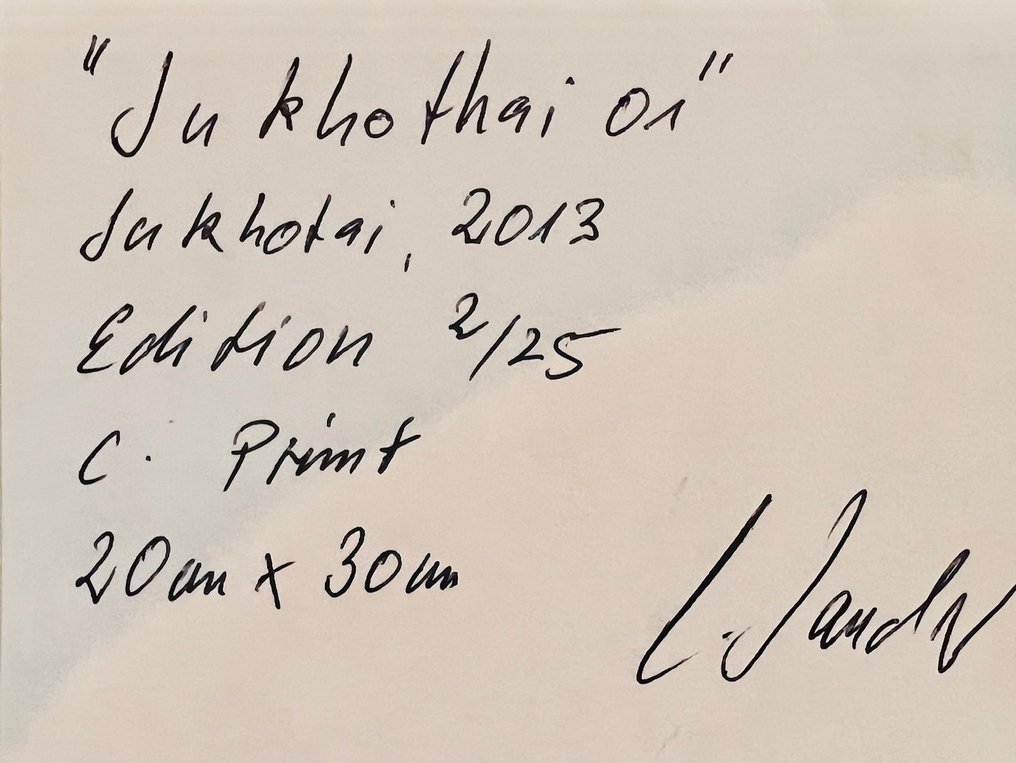 "Sukhothai 01"
Sukhotai, 2013
Edition 2/25
C. Print
20cm x 30cm